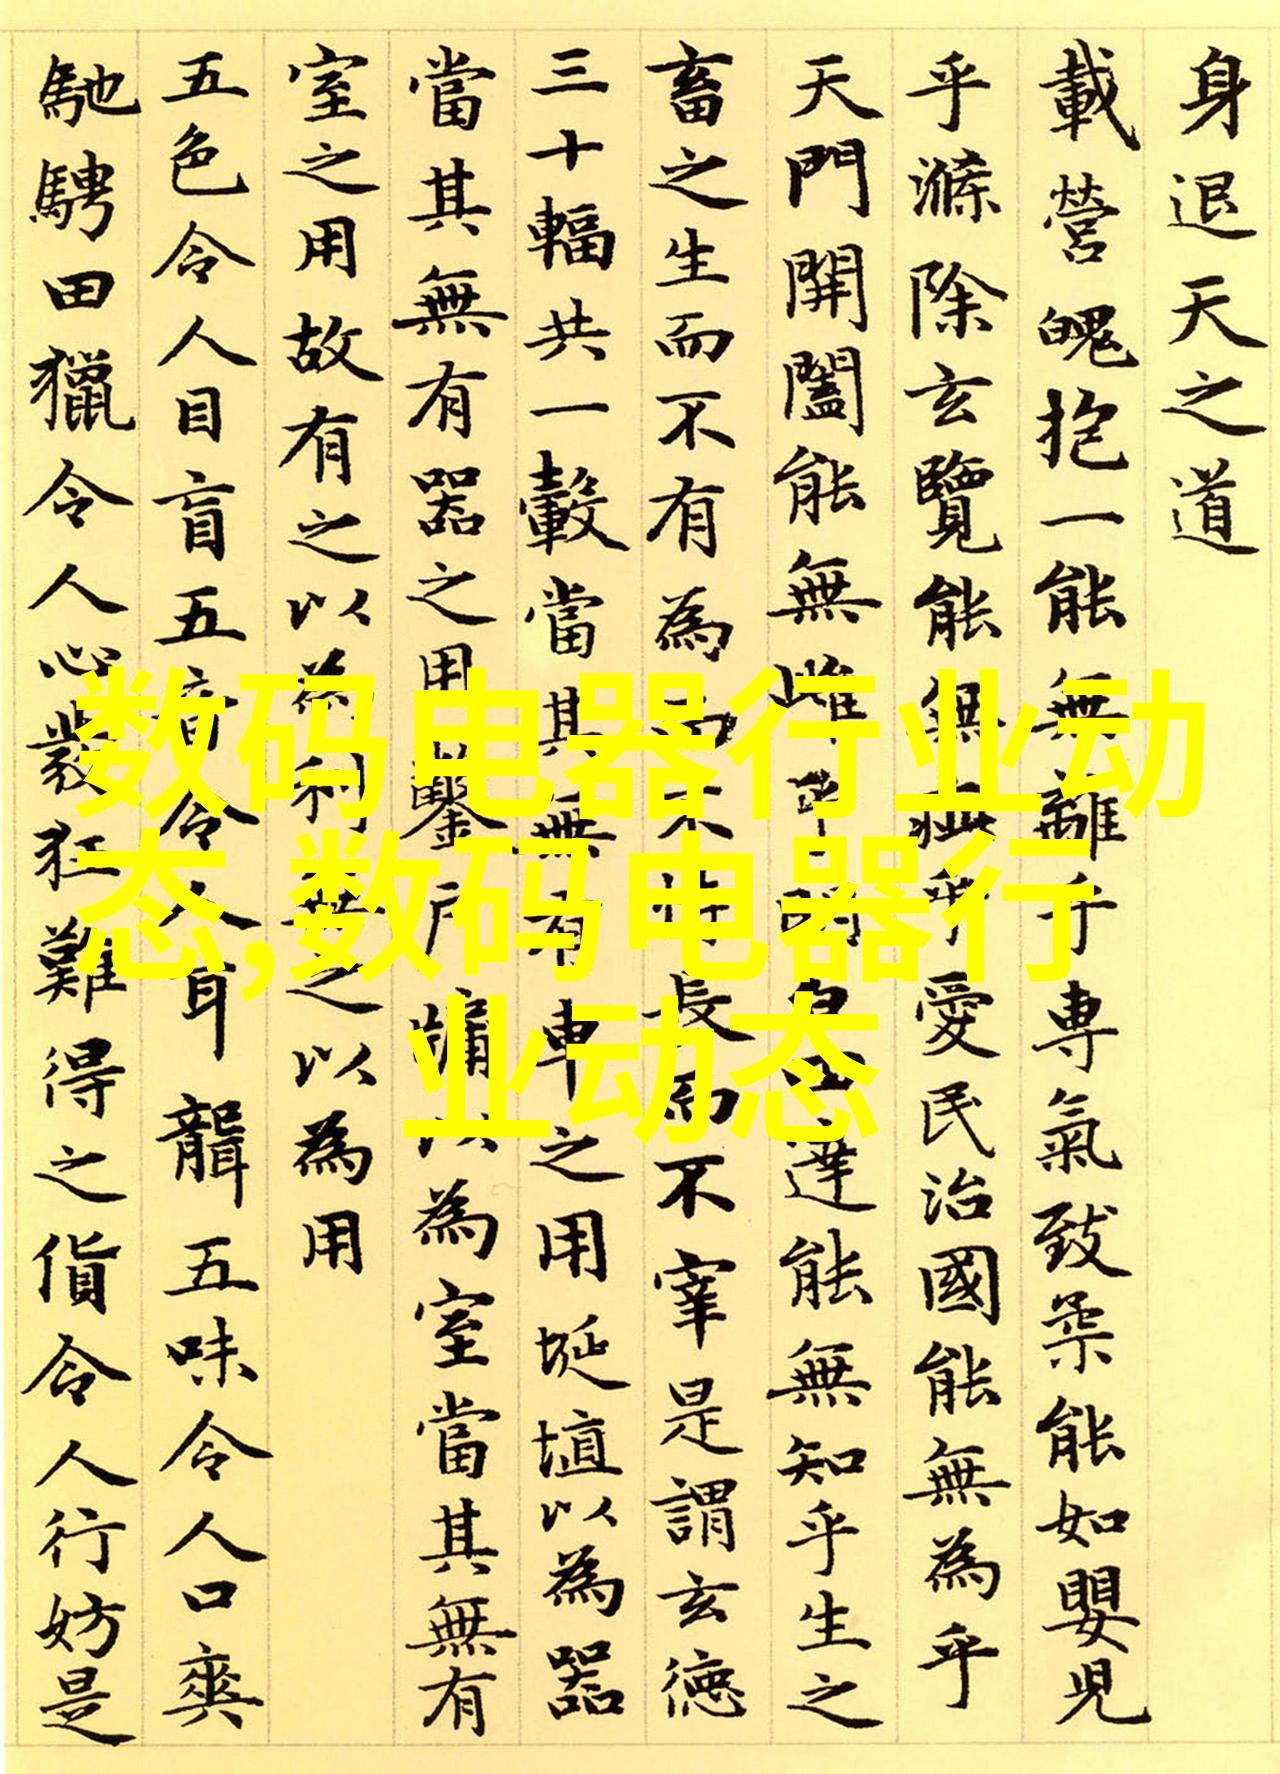 身退天之道
載營魄抱一能無離乎專氣致柔能如嬰兒
乎滌除玄覽能無疵乎愛民治國能無為乎
天門開闔能無雌乎明白四達能無知乎生之
畜之生而不有為而不恃長而不宰是謂玄德
三十輻共一轂當其無有車之用埏埴以為器
當其無有器之用鑿戶牖以為室當其無有
室之用故有之以為利無之以為用
五色令人目盲五音令人耳聾五味令人口爽
馳騁田獵令人心發狂難得之貨令人行妨是
数码电器行业动
态,数码电器行
业动态